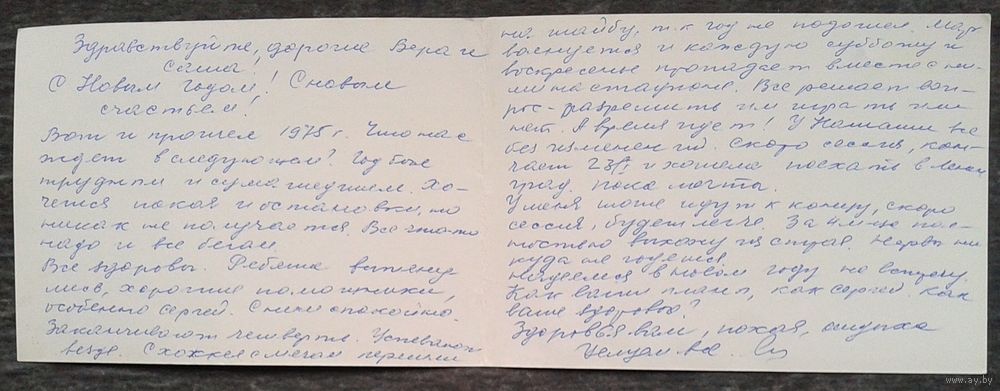 Здравствуйте, дорогие Вера и
Саша!
С Новым годом! С новым
счастьем!
Вот и прошел 1975 г. Что нас
ждет в следующем? Год был
трудным и сумасшедшим. Хо-
чется покоя и остановки, но
никак не получается. Все что-то
надо и все бегом.
Все здоровы. Ребята вытяну-
лись, хорошие помощники,
особенно Сергей. С ним спокойно.
Заканчивают четверть. Успевают
везде. С хоккея с мячом перешли
на шайбу, т.к. год не подошел.
волнуется и каждую субботу и
воскресенье пропадает вместе с ни-
ми на стадионе. Все решает воп-
рос - разрешить им играть или
нет. А время идет! У Наташи все
без изменений. Скоро сессия, кон-
чает 23/I и хотела поехать в Ленин
град. Пока мечты.
У меня тоже идут к концу, скоро
сессия, будет легче. За 4 м-ца пол-
ностью выхожу из строя. Нервы ни-
куда не годятся.
Надеемся в новом году на встречу.
Как ваши планы, как Сергей. Как
ваше здоровье?
Здоровья вам, покоя, отдыха
Целуем все.
www.ay.by